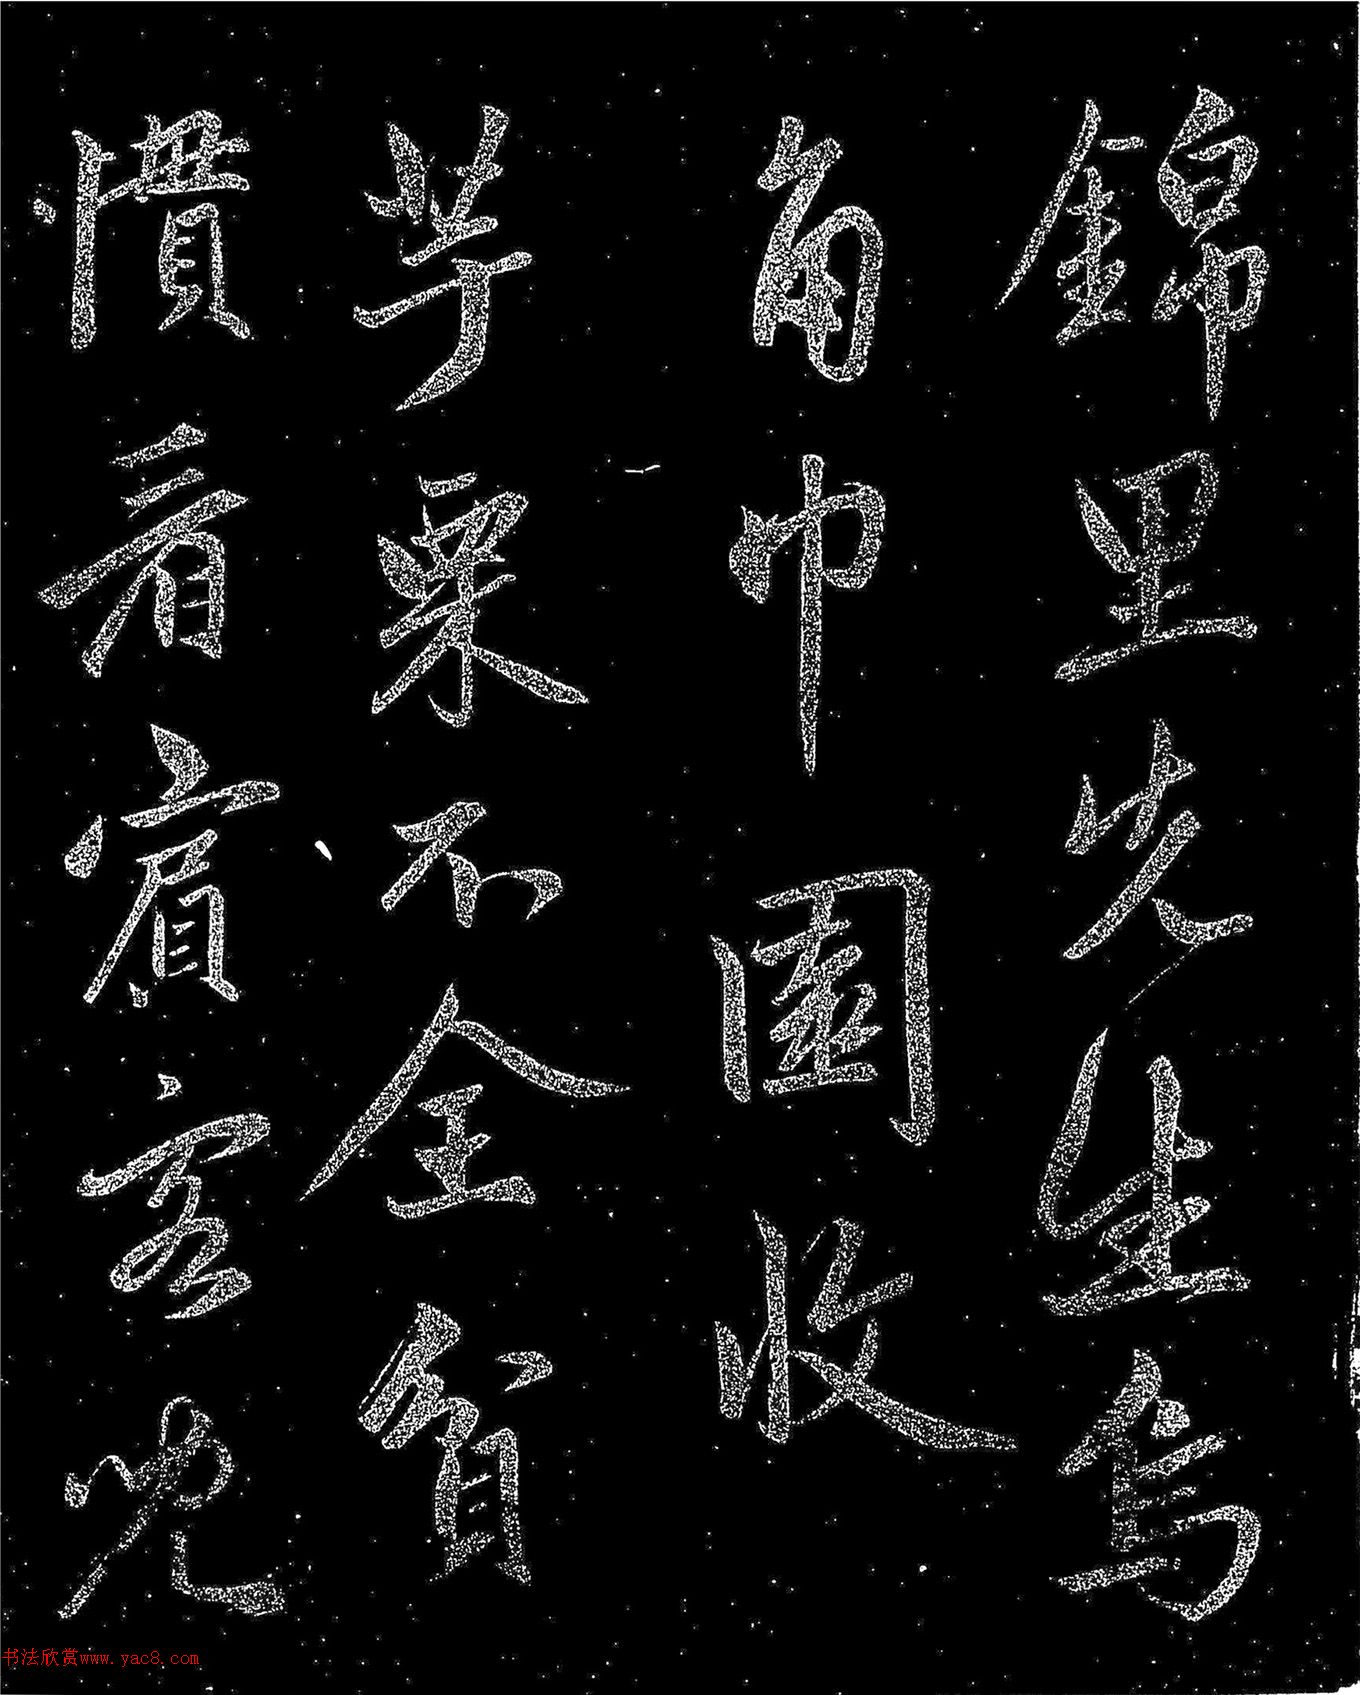 錦里先生烏
角巾園收
芋栗不全貧
慣看賓客兒
书法欣赏www.yac8.com